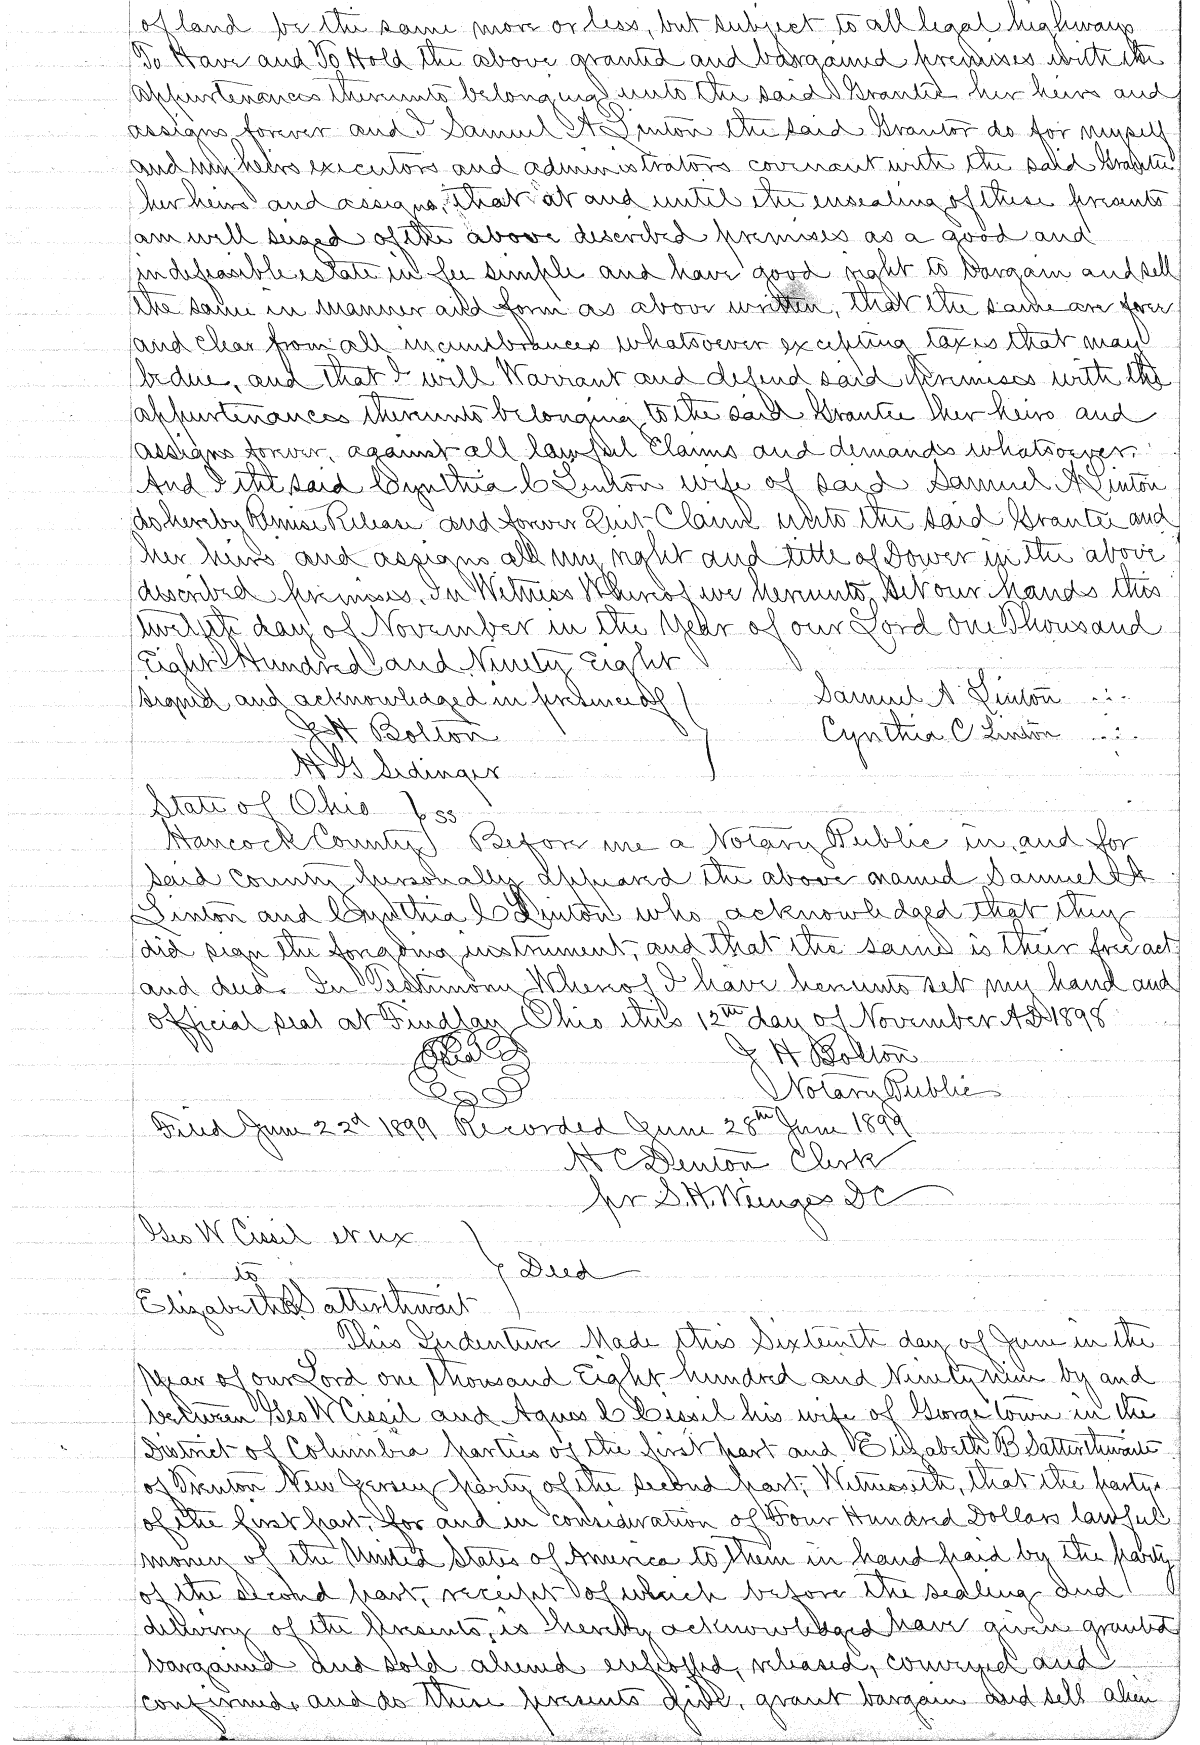 of land be the same more or less, but subject to all legal highways
To Have and To Hold the above granted and bargained premises with the
appurtenances thereunto belonging unto the said Grantee her heirs and
assigns forever and I Samuel A Linton the said Grantor do for myself
and my heirs executors and administrators covenant with the said Grantee
her heirs and assigns, that at and until the ensealing of these presents
am well seized of the above described premises as a good and
indefeasible estate in fee simple and have good right to bargain and sell
the same in manner and form as above written, that the same are free
and clear from all incumbrances whatsoever excepting taxes that may
be due, and that I will Warrant and defend said premises with the
appurtenances thereunto belonging to the said Grantee her heirs and
assigns forever, against all lawful Claims and demands whatsoever.
And I the said Cynthia C Linton wife of said Samuel A Linton
do hereby Remise Release and forever Quit-Claim unto the said Grantee and
her heirs and assigns all my right and title of Dower in the above
described premises. In Witness Whereof we hereunto set our hands this
twelfth day of November in the Year of our Lord one Thousand
Eight Hundred and Ninety Eight
Signed and acknowledged in presence of Samuel A Linton
J H Bolton Cynthia C Linton
H G Sedinger
State of Ohio } ss
Hancock County } Before me a Notary Public in, and for
said County personally appeared the above named Samuel A
Linton and Cynthia C Linton who acknowledged that they
did sign the forgoing instrument, and that the same is their free act
and deed. In Testimony Whereof I have hereunto set my hand and
official seal at Findlay Ohio this 12th day of November A.D 1898
Seal J H Bolton
Notary Public
Filed June 22d 1899 Recorded June 28th June 1899
H C Denton Clerk
pr S. H. Wenges DC
Geo W Cissil et ux
to } Deed
Elizabeth B Satterthwait
This Indenture Made this Sixteenth day of June in the
Year of our Lord one thousand Eight hundred and Ninety nine by and
between Geo W Cissil and Agnes C Cissil his wife of Georgetown in the
District of Columbia parties of the first part and Elizabeth B Satterthwaite
of Trenton New Jersey party of the second part, Witnesseth, that the partys
of the first part, for and in consideration of Four Hundred Dollars lawful
money of the United States of America to them in hand paid by the party
of the second part, receipt of which before the sealing and
delivery of the presents, is hereby acknowledged have given granted
bargained and sold aliened enfeoffed, released, conveyed and
confirmed, and do these presents give, grant bargain and sell alien